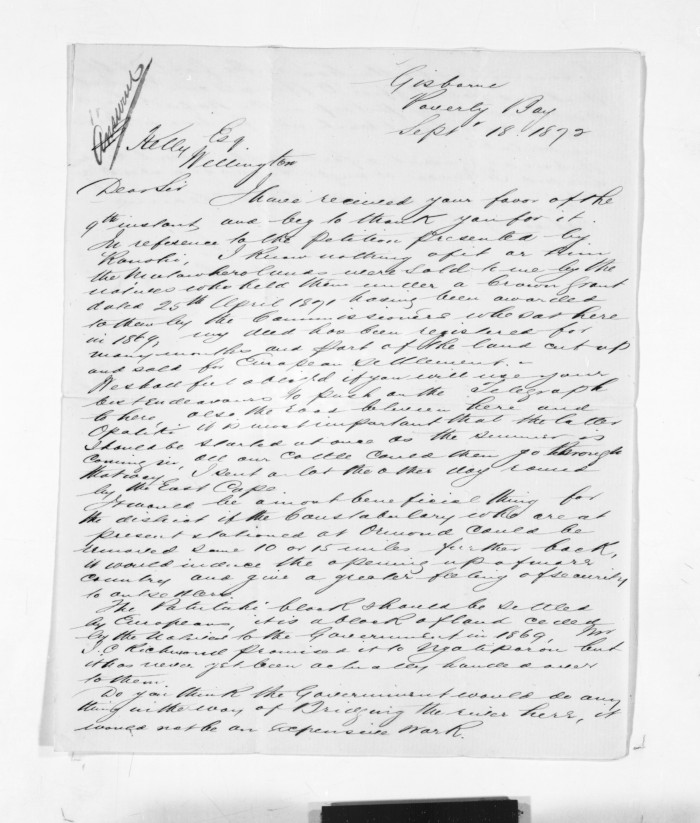 Gisborne
Poverty Bay
Septr 18. 1872
Answered
Kelly Esq.
Wellington
Dear Sir I have received your favor of the
9th instant and beg to thank you for it.
In reference to the Petition presented by
I know nothing of it or him
the Matawhero lands were sold to me by the
natives who held them under a Crown grant
dated 25th April 1871 having been awarded
to them by the Commissioners who sat here
in 1869, my deed has been registered for
many months and part of the land cut up
and sold for European settlement.
We shall feel obliged if you will use your
best endeavours to push on the Telegraph
to here, also the road between here and
Opotiki it is most important that the latter
should be started at once as the summer is
coming in, all our cattle could then go through
that way. I sent a lot the other day round
by the East Cape.
It would be a most beneficial thing for
the district if the Constabulary who are at
present stationed at Ormond could be
removed some 10 or 15 miles further back,
it would induce the opening up of more
country and give a greater feeling of security
to our settlers.
The Patutahi block should be settled
by Europeans, it is a block of land ceded
by the Natives to the Government in 1869, Mr
J. C Richmond promised it to Ngatiporou but
it has never yet been actually handed over
to them.
Do you think the Government would do any
thing in the way of Bridging the river here, it
would not be an expensive work.